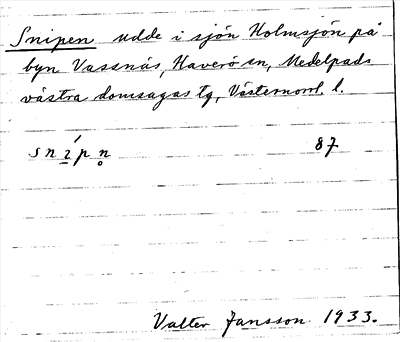 Snipen udde i sjön Holmsjön på
byn Vassnäs, Haverö sn, Medelpads
västra domsagas tg, Västernorrl. l.
snípn̥ 87
Valter Jansson 1933.